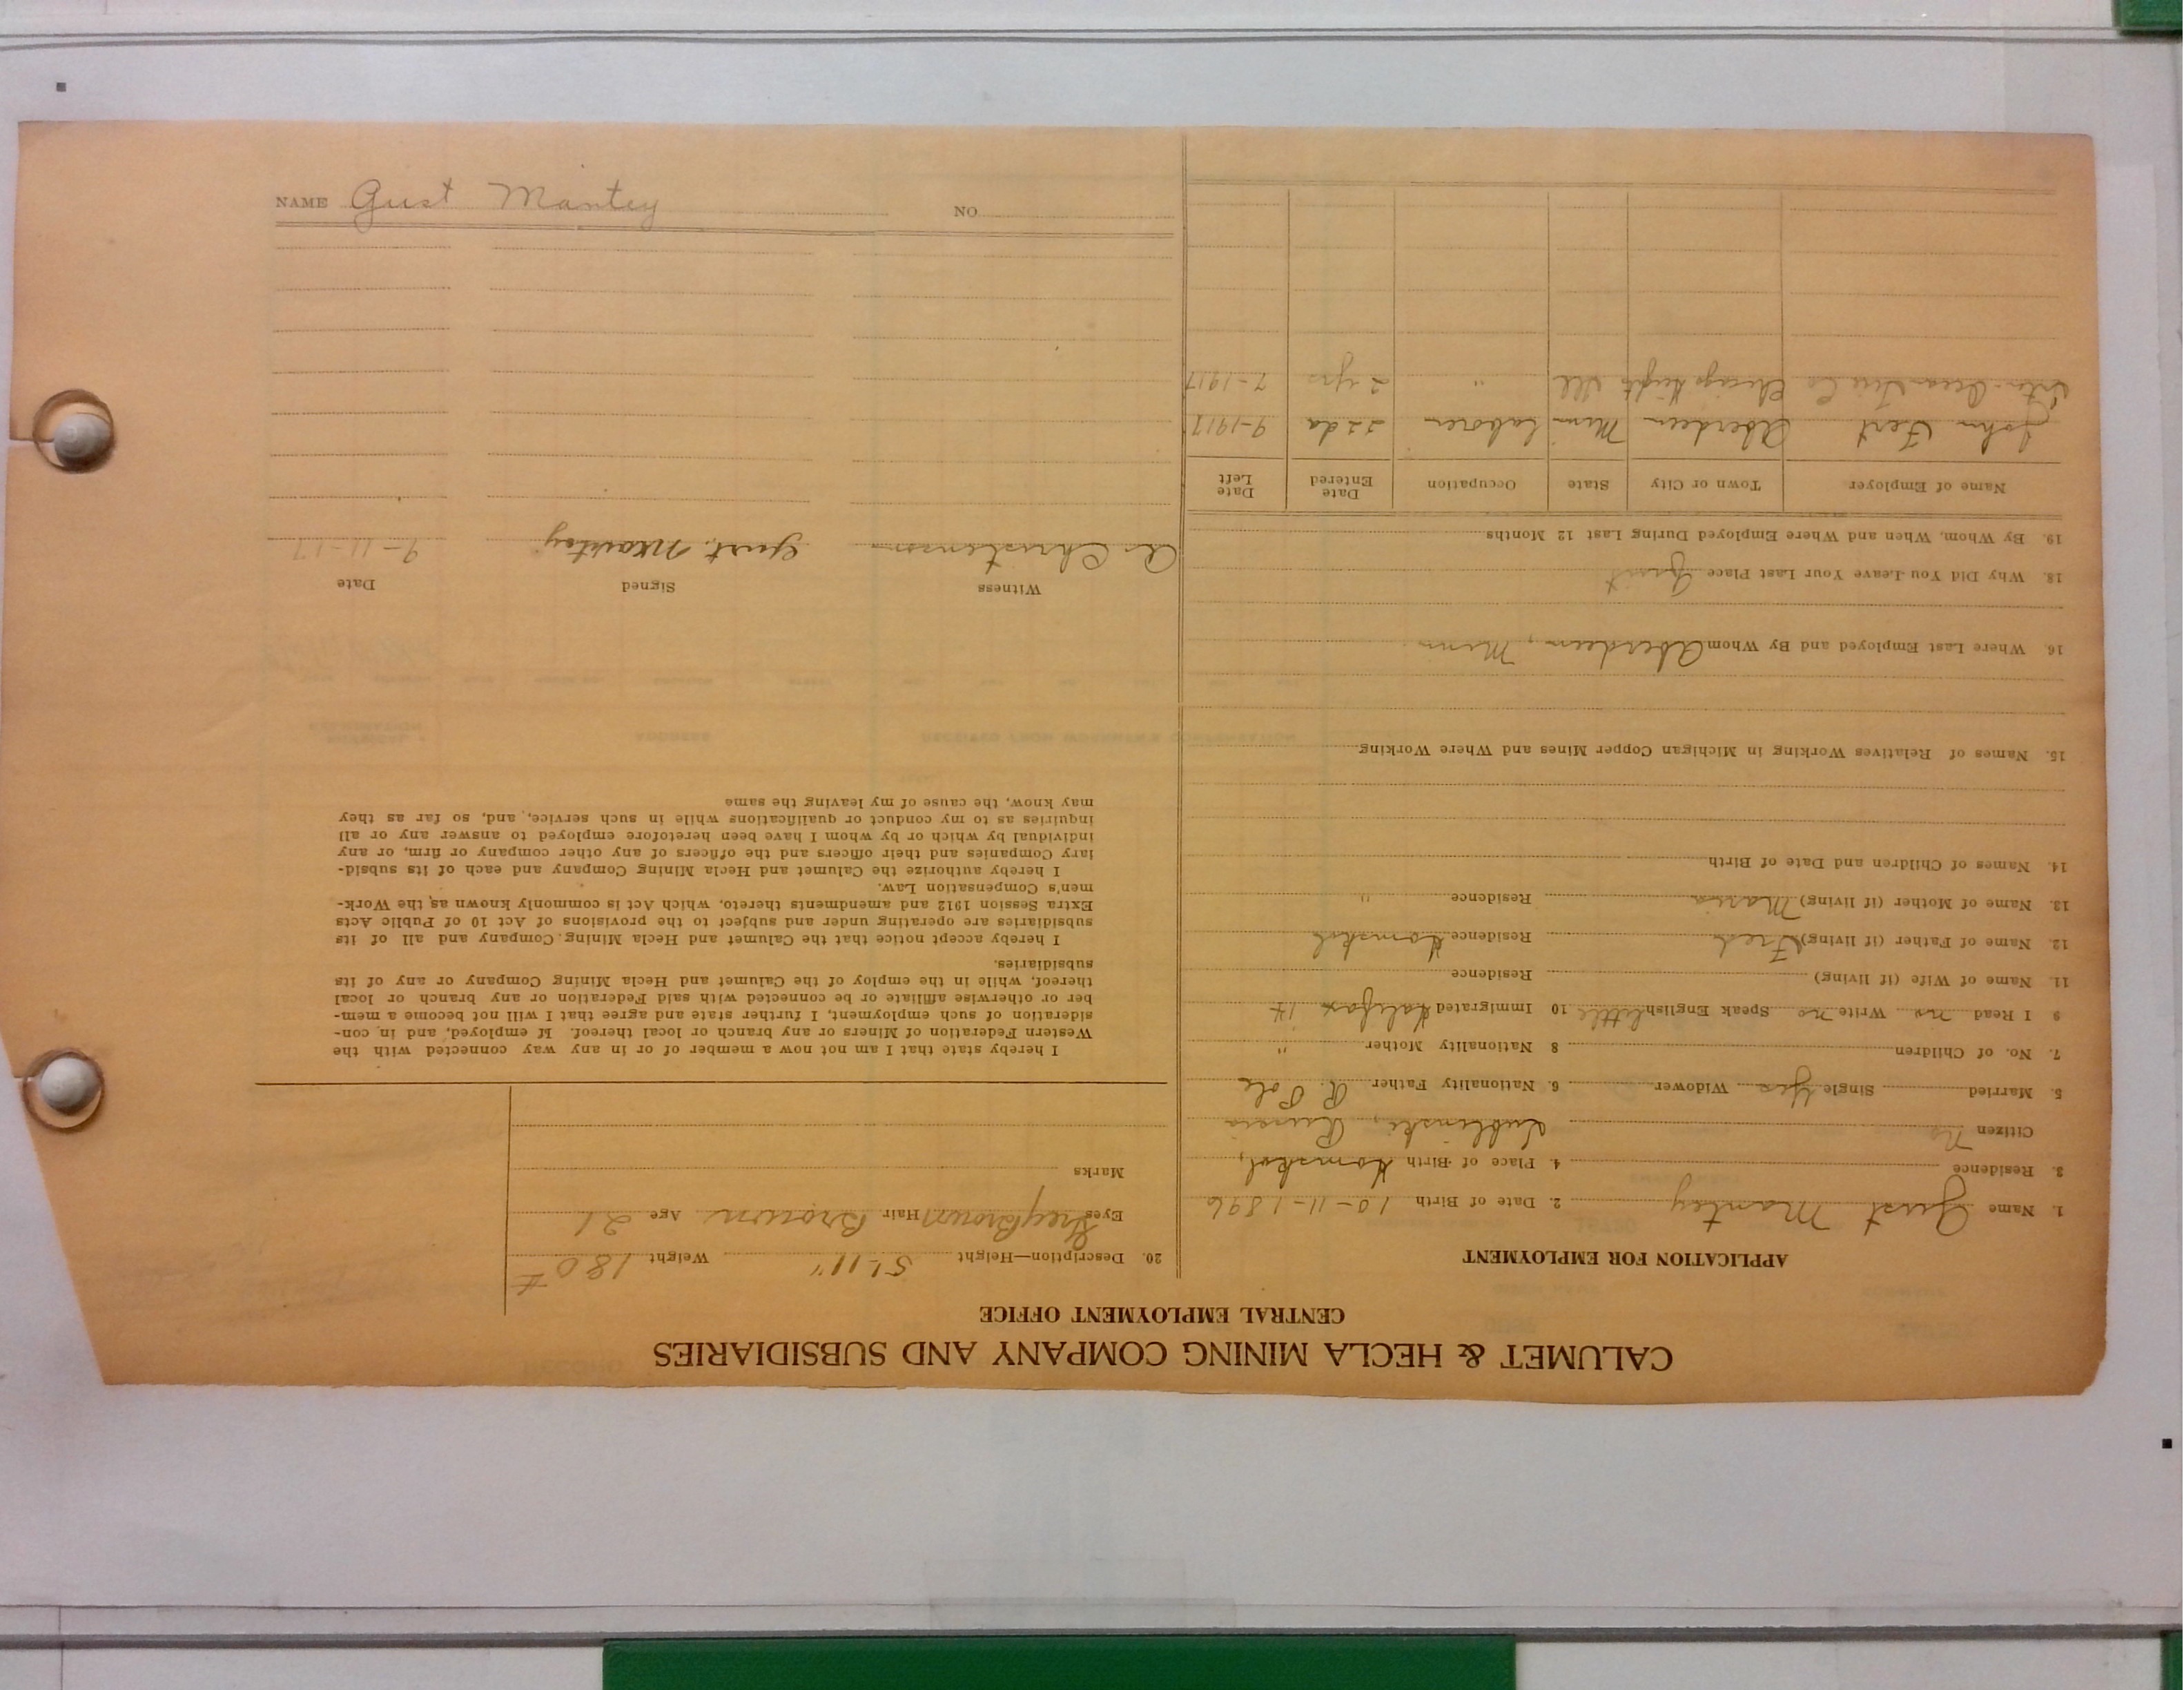 CALUMET & HECLA MINING COMPANY AND SUBSIDIARIES
CENTRAL EMPLOYMENT OFFICE
APPLICATION FOR EMPLOYMENT
1. Name Gust Mantey 2. Date of Birth 10-11-1896
3. Residence 4. Place of Birth
Citizen no Lublinski, Russia
5. Married Single yes Widower 6. Nationality Father R. Pole
7. No. of Children 8 Nationality Mother "
9 I Read no Write no Speak English little 10 Immigrated Halifax 14
11. Name of Wife (if living) Residence
12. Name of Father (if living) Fred Residence
13. Name of Mother (if living) Maria Residence "
14. Names of Children and Date of Birth
15. Names of Relatives Working in Michigan Copper Mines and Where Working
16. Where Last Employed and By Whom Aberdeen, Minn
18. Why Did You Leave Your Last Place
19. By Whom, When and Where Employed During Last 12 Months
Name of Employer Town or City State Occupation Date Entered Date Left
John Aberdeen Minn Laborer 22 da 9-1917
Chicago Height Ill " 2 yrs 7-1917
20. Description—Height 5'-11" Weight 180 #
Eyes Grey Brown Hair Brown Age 21
Marks
I hereby state that I am not now a member of or in any way connected with the
Western Federation of Miners or any branch or local thereof. If employed, and in con-
sideration of such employment, I further state and agree that I will not become a mem-
ber or otherwise affiliate or be connected with said Federation or any branch or local
thereof, while in the employ of the Calumet and Hecla Mining Company or any of its
subsidiaries.
I hereby accept notice that the Calumet and Hecla Mining Company and all of its
subsidiaries are operating under and subject to the provisions of Act 10 of Public Acts
Extra Session 1912 and amendments thereto, which Act is commonly known as the Work-
men's Compensation Law.
I hereby authorize the Calumet and Hecla Mining Company and each of its subsid-
iary Companies and their officers and the officers of any other company or firm, or any
individual by which or by whom I have been heretofore employed to answer any or all
inquiries as to my conduct or qualifications while in such service, and, so far as they
may know, the cause of my leaving the same
Witness Signed Date
A. Christenson Gust. Mantey 9-11-17
NAME Gust Mantey NO